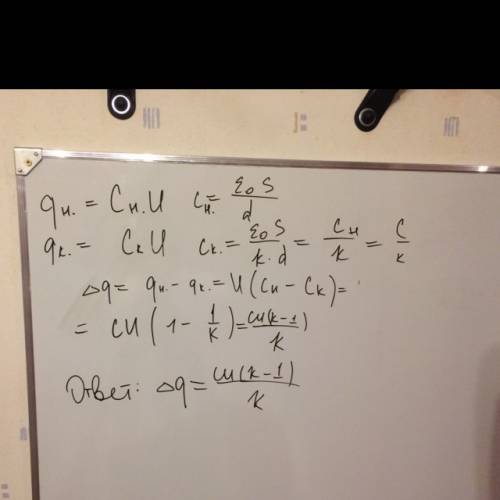 qн. = Cн.U Cн. = ε₀S/d
qк. = CкU Cк. = ε₀S/k·d = Cн/k = C/k
Δq = qн. - qк. = U(Cн - Cк) =
= CU(1 - 1/k) = CU(k-1)/k
Ответ: Δq = CU(k-1)/k